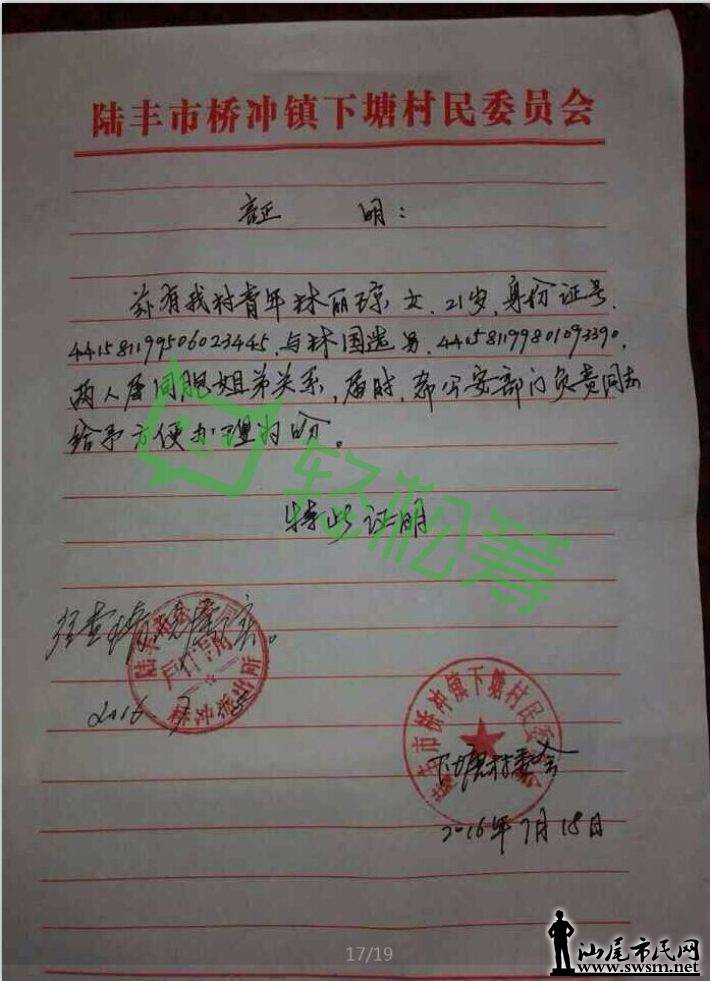 陆丰市桥冲镇下塘村民委员会
证 明：
兹有我村青年林丽琼，女，21岁，身份证号，
441581199506023445，与林国 男，441581199801093390，
两人属同胞姐弟关系，届时，希公安部门负责同志
给予方便办理为盼。
轻松筹
特此证明
经查情况属实。
户口专用
派出所
2016.7
陆丰市桥冲镇下塘村民委员会
下塘村委会
2016年7月18日
17/19
汕尾市民网
www.swsm.net